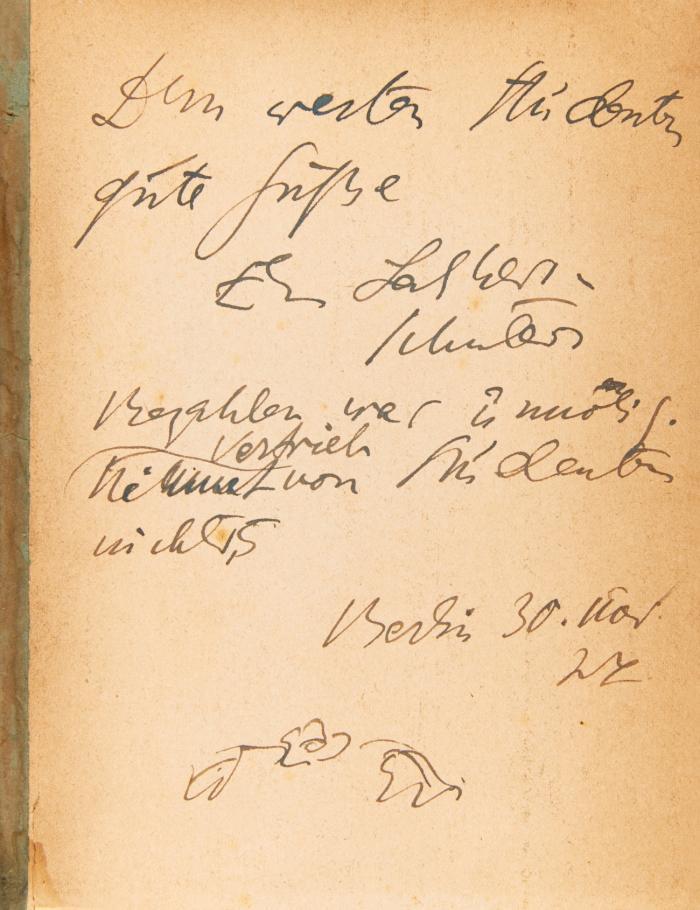 Dem werten Studenten
gute Grüße
Else Lasker-
Schüler
Bezahlen war unnötig.
Vertrieb
nimmt von Studenten
nichts
Berlin 30. Nov.
27